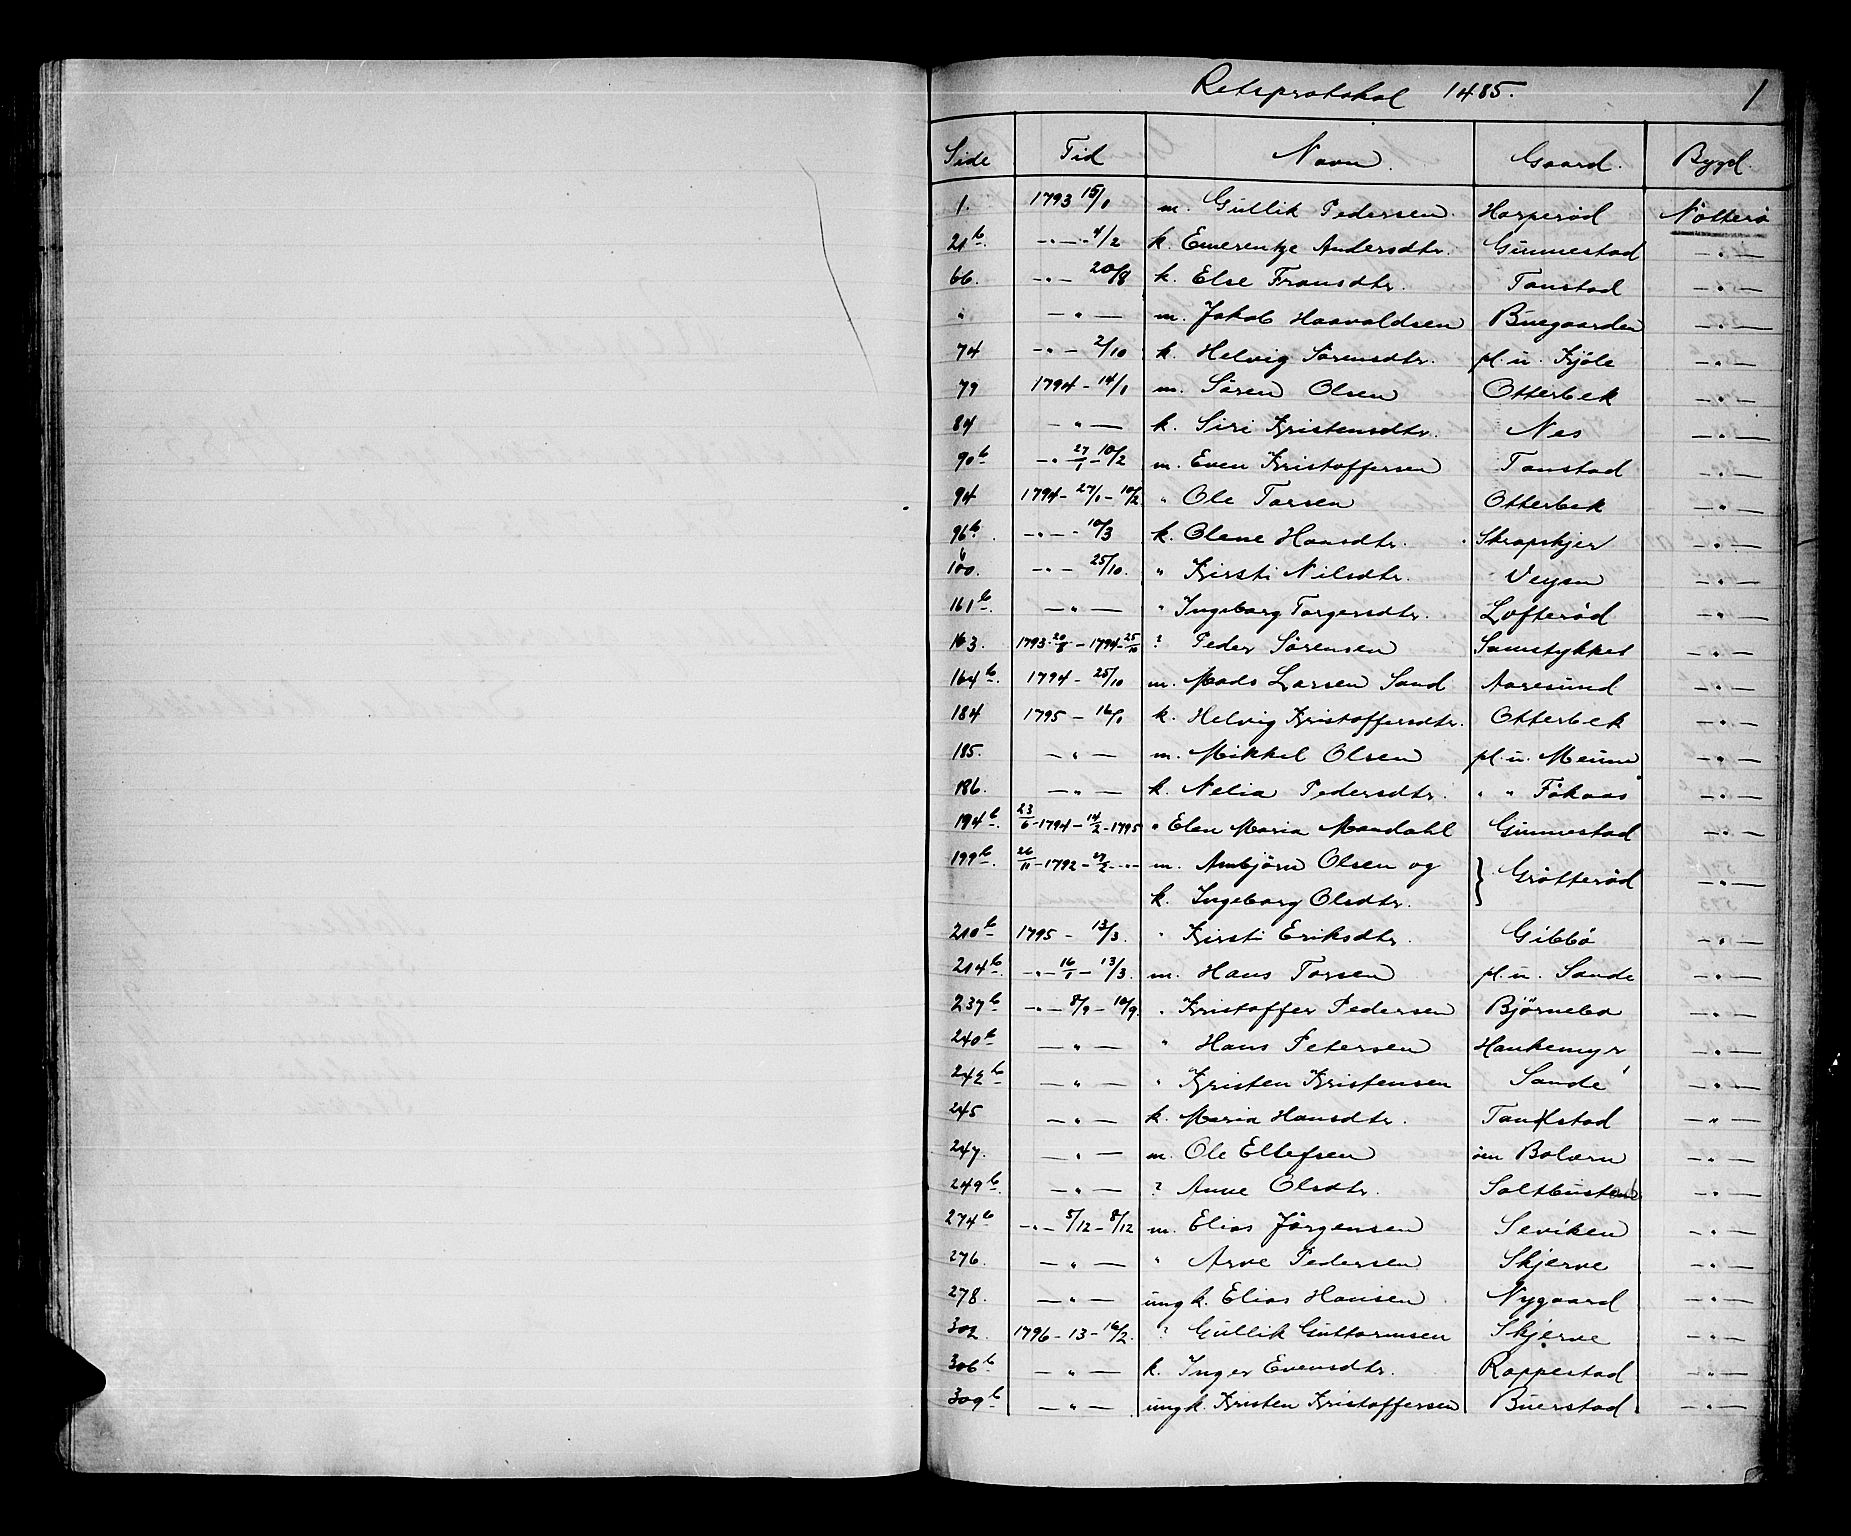 Retsprotokol 1485. 1
Side Tid Navn. Gaard. Bygd.
1. 1793 15/1 m. Gullik Pedersen. Harperød Nötterö
21b. -"- 4/2 k. Emerentze Andersdtr. Gunnestad -"-
66. -"- 20/8 k. Else Fransdtr. Tanstad -"-
" -"- m. Jakob Haavaldsen Buegaarden -"-
74 -"- 2/10 k. Helvig Sørensdtr. pl. u. Kjöle -"-
79 1794 - 14/1 m. Søren Olsen Otterbek -"-
84 -"- k. Siri Kristensdtr. Nes -"-
90b -"- 27/1 - 10/2 m. Even Kristoffersen Tanstad -"-
94 1794 - 27/1 - 10/2 " Ole Torsen Otterbek -"-
96b. -"- 10/3 k. Olene Hansdtr. Skrapskjer -"-
100.b -"- 25/10. " Kirsti Nilsdtr. Veysn -"-
161b. -"- " Ingeborg Torgersdtr. Lofterød -"-
163. 1793 20/8 - 1794 - 25/10 ? Peder Sörensen Samstykket -"-
164b. 1794 - 25/10 m. Mads Larsen Sand Aaresund -"-
184 1795 - 16/1 k. Helvig Kristoffersdtr. Otterbek -"-
185. -"- m. Mikkel Olsen pl. u. Meum -"-
186. -"- k. Nelia Pedersdtr. " " Fökaas -"-
194b. 23/6 - 1794 - 14/2 - 1795 " Elen Maria Mandahl Gunnestad -"-
199b. 26/11 - 1792 - 27/2 -"- m. Anbjörn Olsen og } Grötteröd -"-
k. Ingeborg Olsdtr.
210b 1795 - 13/3. " Kirsti Eriksdtr. Gibbö -"-
214b -"- 16/1 - 13/3. m. Hans Torsen pl. u. Sande -"-
237b -"- 8/9 - 10/9. " Kristoffer Pedersen Björnebo -"-
240b -"- " Hans Petersen Haukemyr -"-
242b -"- " Kristen Kristensen Sande -"-
245 -"- k. Maria Hansdtr. Tandstad -"-
247. -"- m. Ole Ellefsen öen Bolærn -"-
249b. -"- ? Anne Olsdtr. Saltbustad -"-
274b -"- 5/12 - 8/12 m. Elias Jörgensen Seviken -"-
276. -"- " Arve Pedersen Skjerve -"-
278. -"- ungk. Elias Hansen Nygaard -"-
302. 1796 - 13 - 16/2. " Gullik Guttormsen Skjerve -"-
306b -"- k. Inger Evensdtr. Rappestad -"-
309b -"- ungk. Kristen Kristoffersen Buerstad -"-